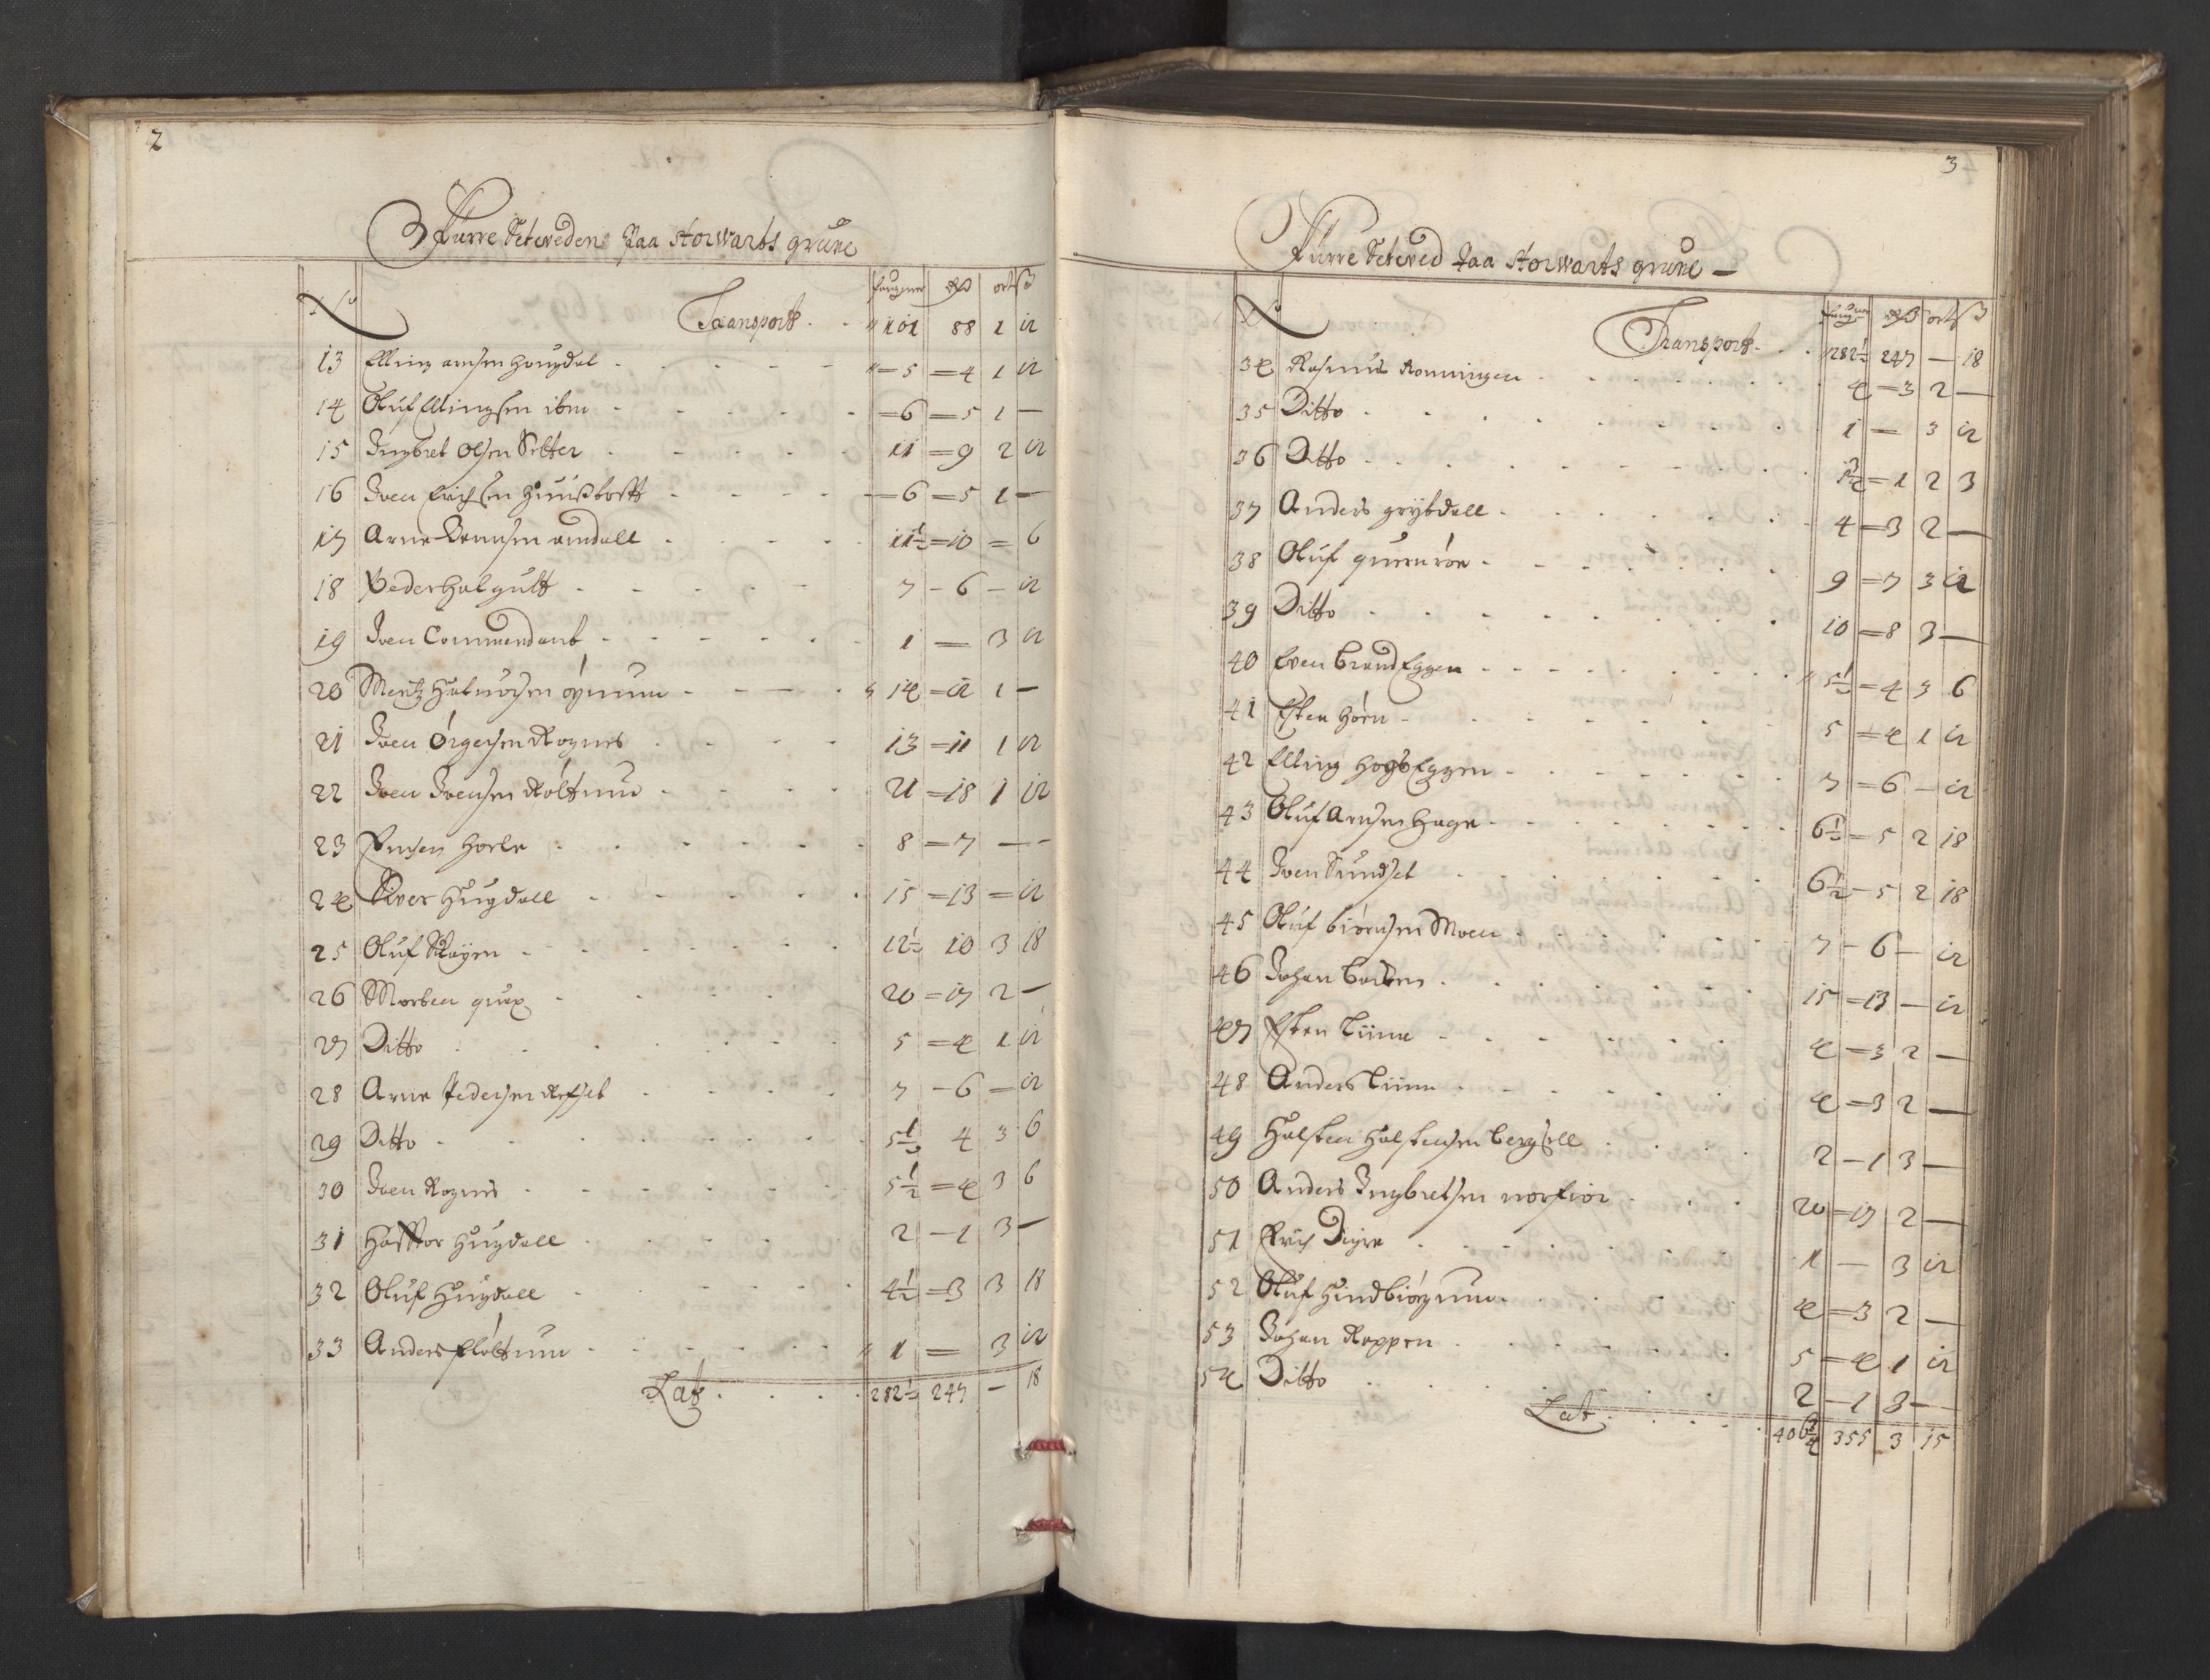 2
Furre Seteveden Paa Storwarts grune
No faugner rdr ort ß
Transport 101 88 1 12
13 Elling arnsen Hougdal 5 4 1 12
14 Oluf Ellingsen ibm 6 5 1 —
15 Ingbret Olsen Setter 11 9 2 12
16 Iven Erichsen 6 5 1 —
17 Arne amdall 11½ 10 = 6
18 Peder Halgutt 7 6 — 12
19 Iven Commendant 1 — 3 12
20 Halvorsen 14 12 1 —
21 Iven Örgensen Rognes 13 11 1 12
22 Iven Ivensen Röltmu 21 18 1 12
23 8 7 — -
24 Siver Hugdall 15 13 = 12
25 Oluf 12½ 10 3 18
26 Morten 20 17 2 —
27 Ditto 5 4 1 12
28 Arne Pedersen Refset 7 6 = 12
29 Ditto 5½ 4 3 6
30 Iven Rognes 5½ 4 3 6
31 Hugdall 2 1 3 —
32 Oluf Hugdall 4½ 3 3 18
33 Anders flöttum 1 = 3 12
Lat 282½ 247 — 18
3
Furre Seteved Paa Storwarts grune —
No faugner rdr ort ß
Transport 282½ 247 — 18
34 Rasmus Ronningen 4 3 2 —
35 Ditto 1 — 3 12
36 Ditto 1¾ 1 2 3
37 Anders grytdall 4 3 2 —
38 Oluf 9 7 3 12
39 Ditto 10 8 3 —
40 Even brand Eggen 5½ 4 3 6
41 Esten Hörn 5 4 1 12
42 Elling Hogs Eggen 7 6 — 12
43 Oluf Arnsen Hage 6½ 5 2 18
44 Iven Sundset 6½ 5 2 18
45 Oluf biörnsen Moen 7 6 — 12
46 Johan 15 13 — 12
47 Esten Liinn 4 3 2 —
48 Anders Liinn 4 3 2 —
49 Halsten Halstensen bergsell 2 1 3 —
50 Anders Ingbretsen 20 17 2 —
51 Erich Digre 1 — 3 12
52 Oluf Hindbiörgmu 4 3 2 —
53 Johan Reppen 5 4 1 12
54 Ditto 2 1 3 —
Lat 406¾ 355 3 15